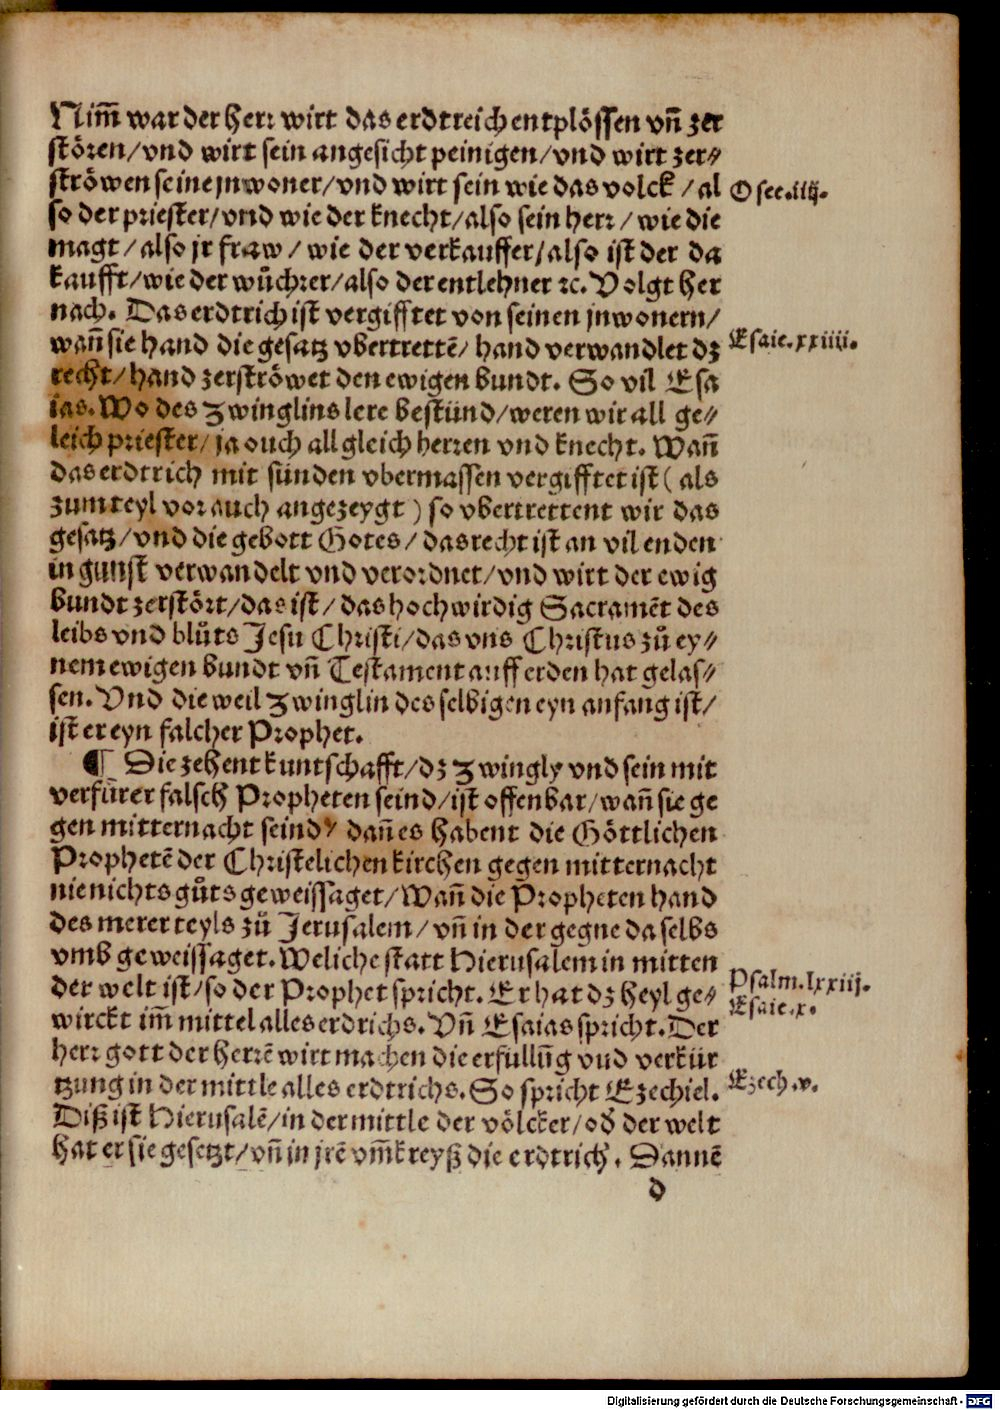 Nim̃ war der Herr wirt das erdtreich entplössen vñ zer
stören/vnd wirt sein angesicht peinigen/vnd wirt zer⸗
ströwen seine jnwoner/vnd wirt sein wie das volck/al
Osee.iiij.
so der priester/vnd wie der knecht/also sein herr/wie die
magt/also jr fraw/wie der verkauffer/also ist der da
kaufft/wie der wůchrer/also der entlehner ꝛc. Volgt her
nach. Das erdtrich ist vergifftet von seinen jnwonern/
wañ sie hand die gesatz vbertrettẽ/hand verwandlet dz
Esaie.xxiiii.
recht/hand zerströwet den ewigen bundt. So vil Esa
ias. Wo des Zwinglins lere bestünd/weren wir all ge⸗
leich priester/ja ouch all gleich herren vnd knecht. Wañ
das erdtrich mit sünden vbermassen vergifftet ist (als
zum teyl vor auch angezeygt) so vbertrettent wir das
gesatz/vnd die gebott Gotes/das recht ist an vil enden
in gunst verwandelt vnd verordnet/vnd wirt der ewig
bundt zerstört/das ist/das hochwirdig Sacramẽt des
leibs vnd blůts Jesu Christi/das vns Christus zů ey⸗
nem ewigen bundt vñ Testament auff erden hat gelas⸗
sen. Vnd die weil Zwinglin des selbigen eyn anfang ist/
ist er eyn falcher Prophet.
¶ Die zehent kuntschafft/dz Zwingly vnd sein mit
verfürer falsch Propheten seind/ist offenbar/wañ sie ge
gen mitternacht seind/ dañ es habent die Göttlichen
Prophetẽ der Christelichen kirchen gegen mitternacht
nie nichts gůts geweissaget/Wañ die Propheten hand
des merer teyls zů Jerusalem/vñ in der gegne daselbs
vmb geweissaget. Weliche statt Hierusalem in mitten
der welt ist/so der Prophet spricht. Er hat dz heyl ge⸗
Psalm.lxxiij.
wirckt im̃ mittel alles erdrichs. Vñ Esaias spricht. Der
Esaie.x.
herr gott der herrẽ wirt machen die erfullũg vnd verkür
tzung in der mittle alles erdtrichs. So spricht Ezechiel.
Ezech.v.
Diß ist Hierusalẽ/in der mittle der völcker/od̕ der welt
hat er sie gesetzt/vñ in jrẽ vm̃kreyß die erdtrich. Dannẽ
d
Digitalisierung gefördert durch die Deutsche Forschungsgemeinschaft - DFG